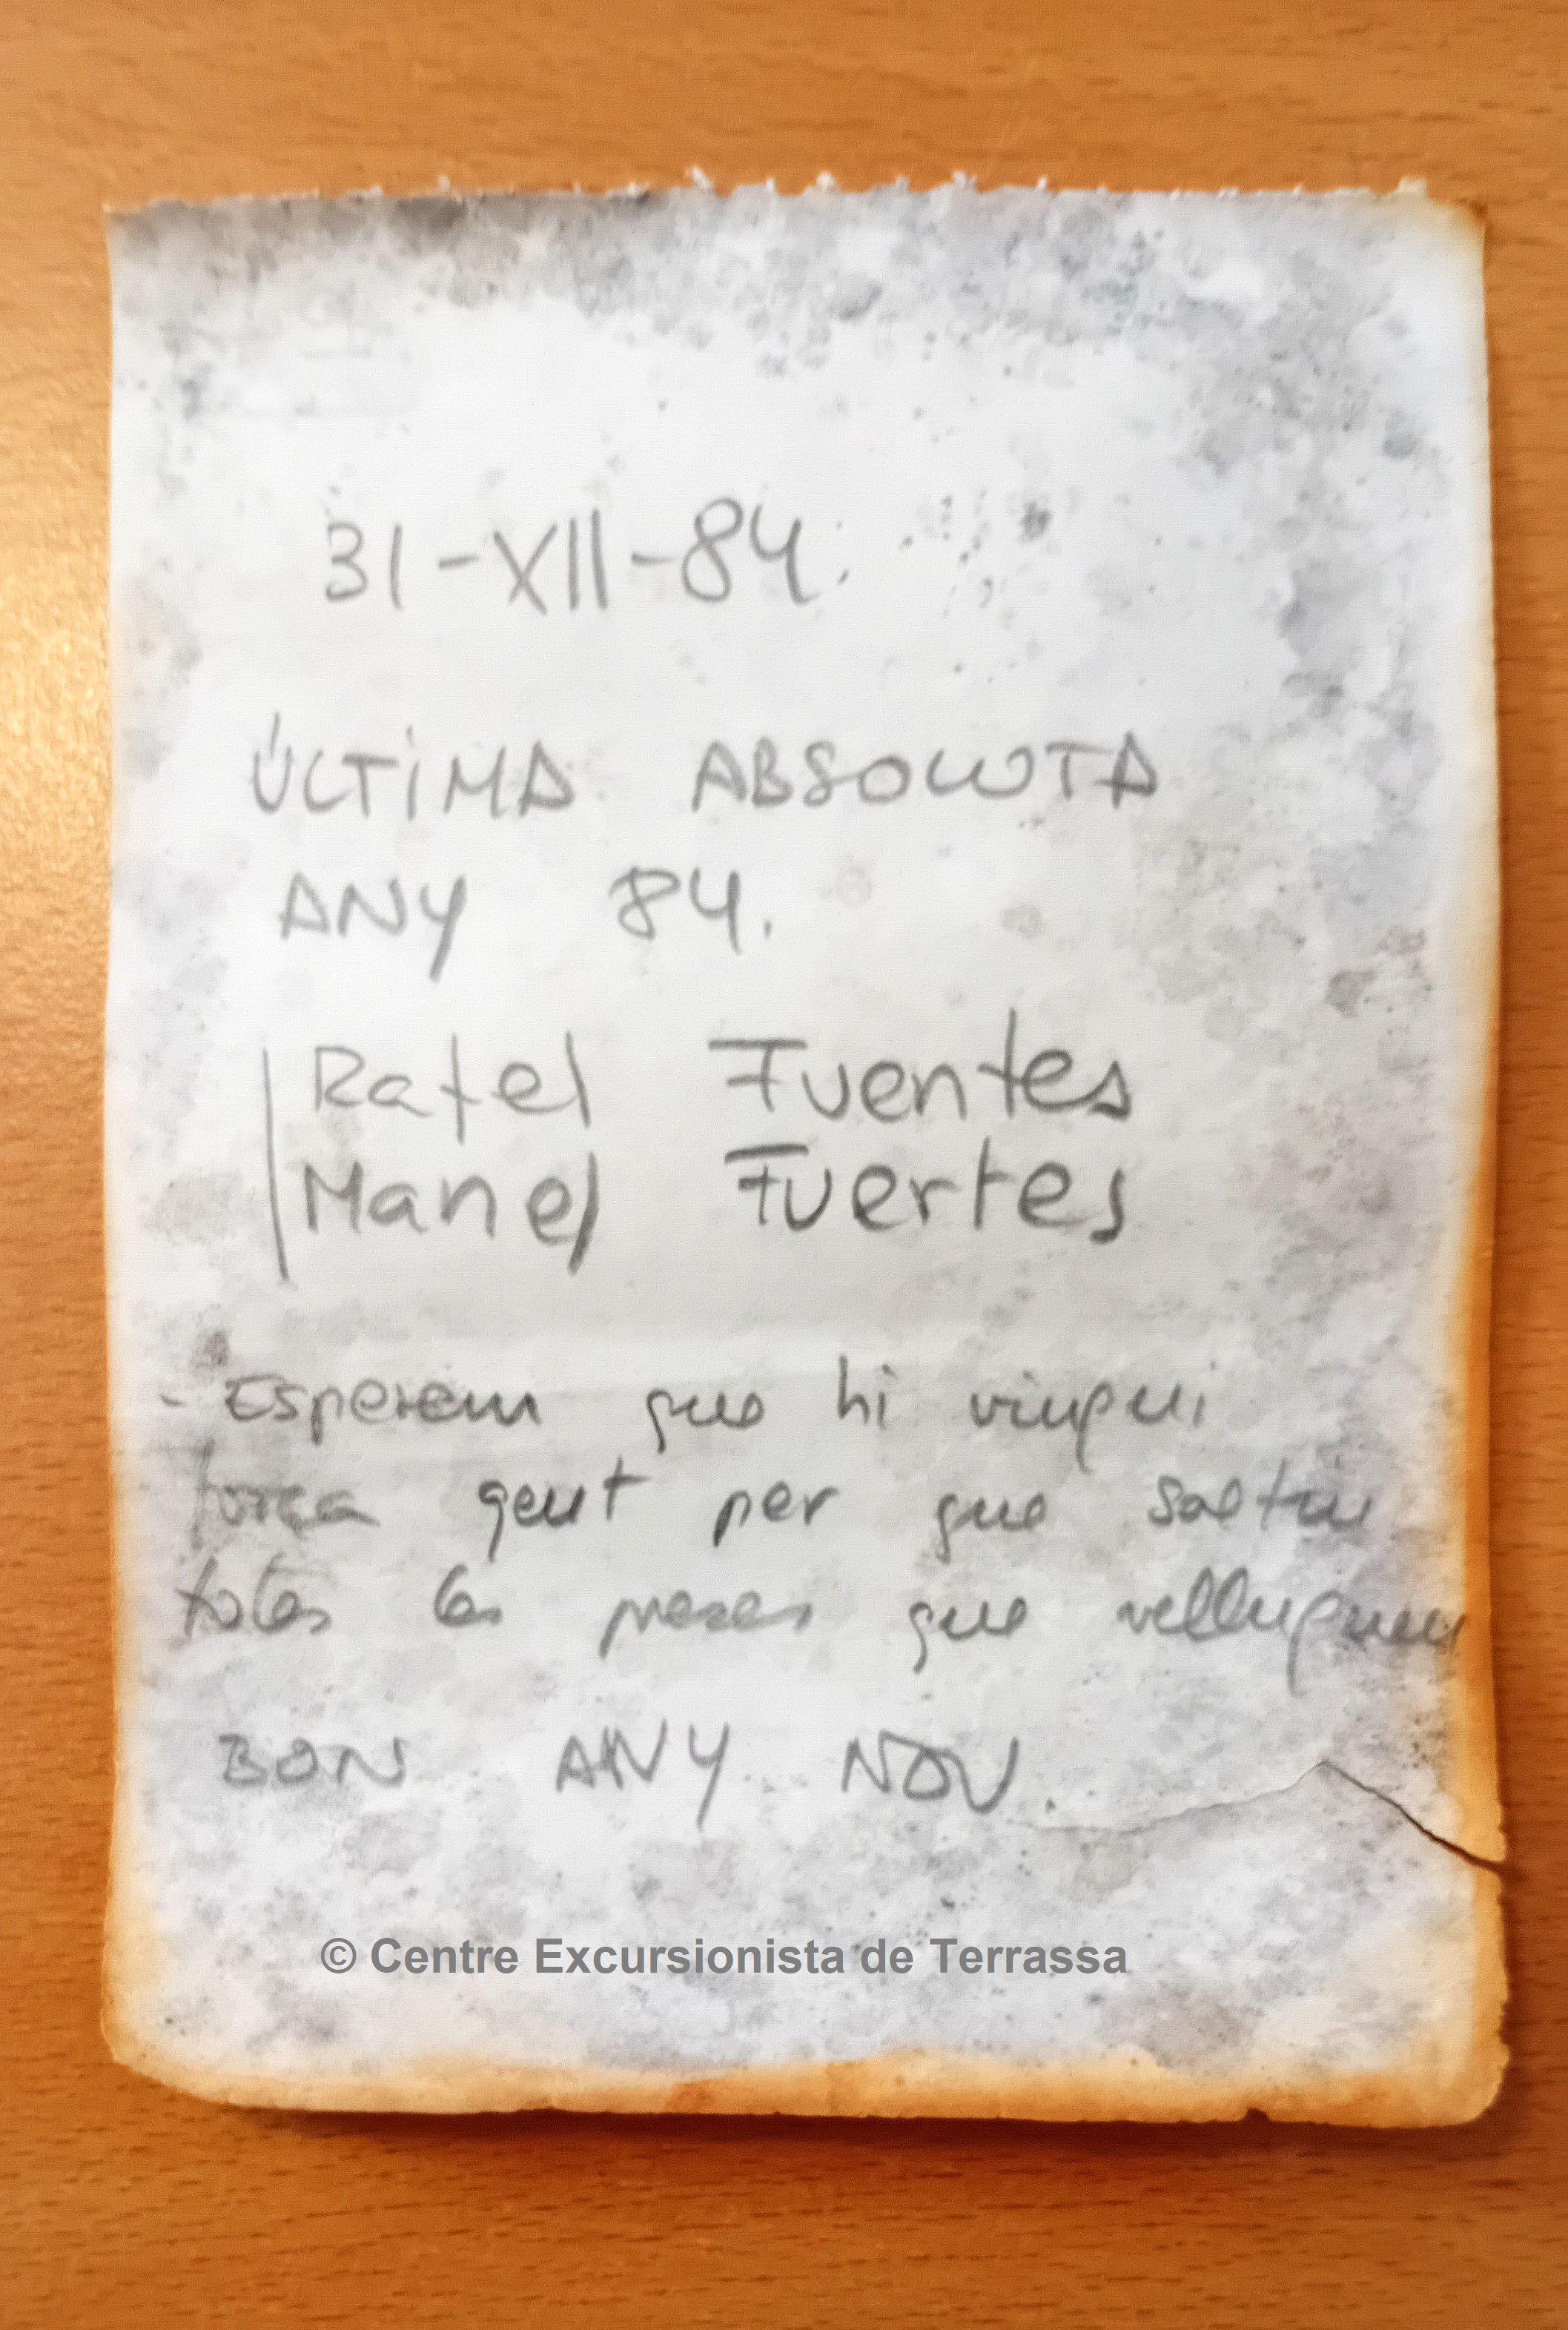 31-XII-84.
ÚLTIMA ABSOLUTA
ANY 84.
Rafel Fuentes
Manel Fuertes
- Esperem que hi vingui
força gent per que saltin
totes les preses que belluguen
BON ANY NOU.
© Centre Excursionista de Terrassa